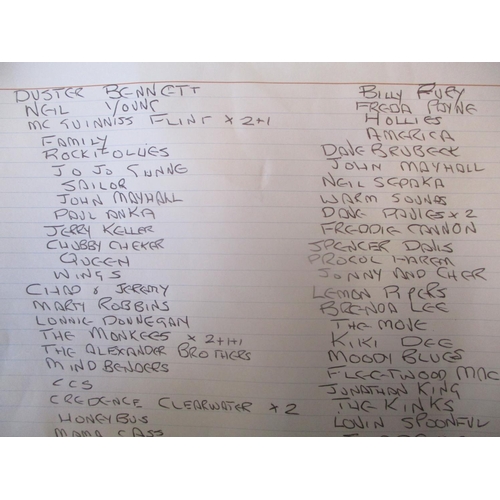 DUSTER BENNETT
NEIL YOUNG
MC GUINNISS FLINT x 2+1
FAMILY
ROCKITOLLIES
JO JO GUNNE
SAILOR
JOHN MAYHALL
PAUL ANKA
JERRY KELLER
CHUBBY CHEKER
QUEEN
WINGS
CHAD & JEREMY
MARTY ROBBINS
LONNIE DONNEGAN
THE MONKEES x 2+1+1
THE ALEXANDER BROTHERS
MINDBENDERS
CCS
CREDENCE CLEARWATER x 2
HONEYBUS
MAMA CASS
BILLY FURY
FREDA PAYNE
HOLLIES
AMERICA
DAVE BRUBECK
JOHN MAYHALL
NEIL SEDAKA
WARM SOUNDS
DAVE DAVIES x 2
FREDDIE CANNON
SPENCER DAVIS
PROCOL HAREM
SONNY AND CHER
LEMON PIPERS
BRENDA LEE
THE MOVE
KIKI DEE
MOODY BLUES
FLEETWOOD MAC
JONATHAN KING
THE KINKS
LOVIN SPOONFUL